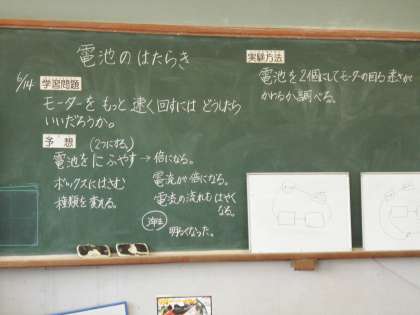 電池のはたらき
6/14
学習問題
モーターをもっと速く回すにはどうしたら
いいだろうか。
予想
(2つにする。)
電池をにふやす→倍になる。
ボックスにはさむ
種類を変える。
電流が倍になる。
電流の流れもはやく
なる。
明るくなった。
実験方法
電池を2個にしてモーターの回る速さが
かわるか調べる。